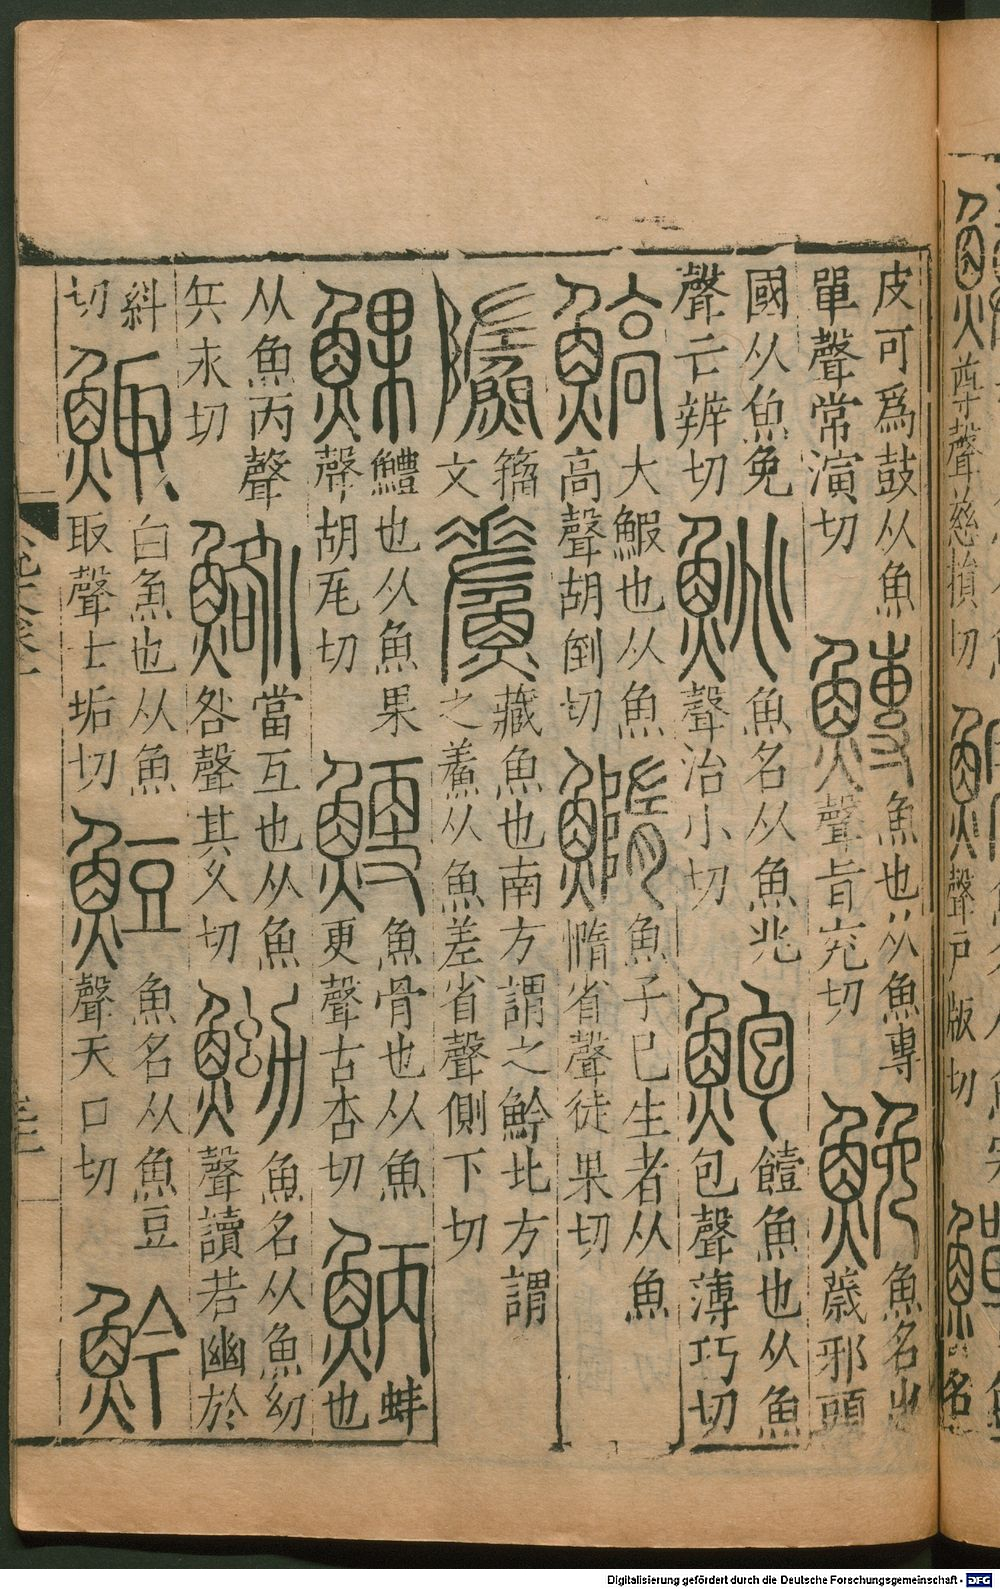 鱒
尊聲慈損切
鯇
聲戶版切
名
皮可爲鼓从魚
單聲常演切
鱄
魚也从魚專
聲旨兖切
鮸
魚名出
薉邪頭
國从魚免
聲亡辨切
鮡
魚名从魚兆
聲治小切
鮑
饐魚也从魚
包聲薄巧切
鰝
大鰕也从魚
高聲胡倒切
鰖
魚子已生者从魚
憜省聲徒果切
籀
文
鮺
藏魚也南方謂之魿北方謂
之鮺从魚差省聲側下切
鱧也从魚果
聲胡瓦切
鯁
魚骨也从魚
更聲古杏切
蚌
也
从魚丙聲
兵永切
鯦
當互也从魚
咎聲其久切
魚名从魚幼
聲讀若幽於
糾
切
鯫
白魚也从魚
取聲士垢切
魚名从魚豆
聲天口切
魿
Digitalisierung gefördert durch die Deutsche Forschungsgemeinschaft - DFG